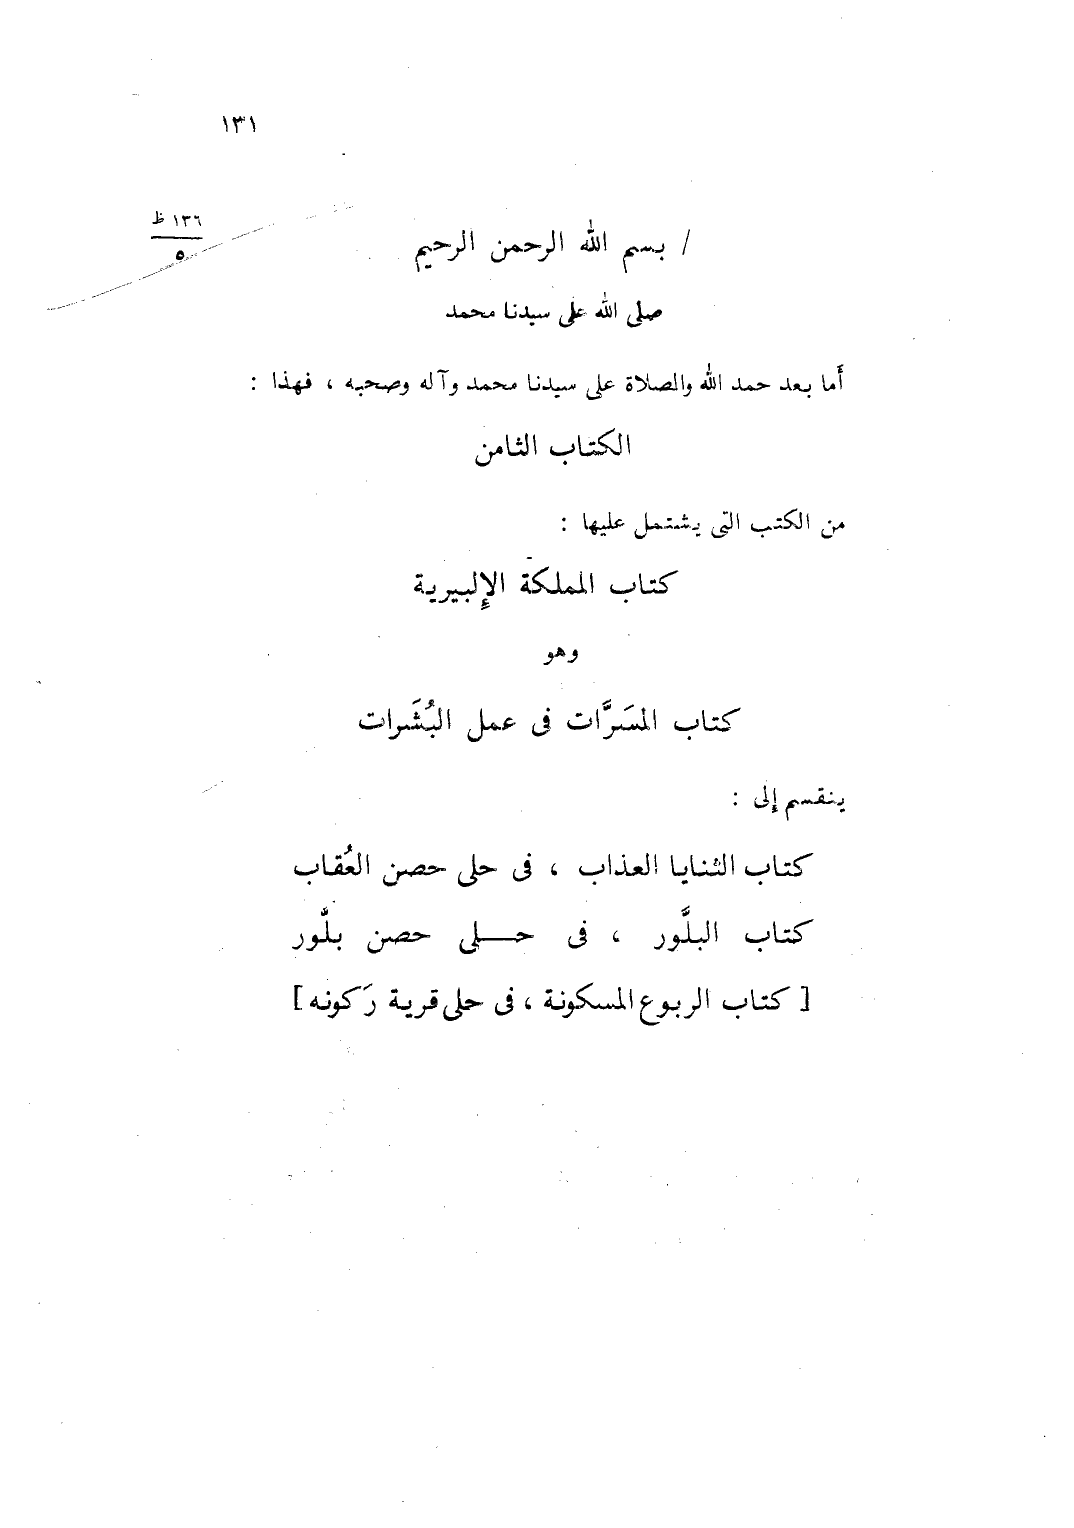 ١٣١
١٣٦ ظ
٥
/ بسم الله الرحمن الرحيم
صلى الله على سيدنا محمد
أما بعد حمد الله والصلاة على سيدنا محمد وآله وصحبه ، فهذا :
الكتاب الثامن
من الكتب التى يشتمل عليها :
كتاب المملكة الإلبيرية
وهو
كتاب المسَرَّات فى عمل البُشَرات
ينقسم إلى :
كتاب الثنايا العذاب ، فى حلى حصن العُقاب
كتاب البلَّور ، فى حـــلى حصن بلَّور
[ كتاب الربوع المسكونة ، فى حلى قرية رَكونه ]